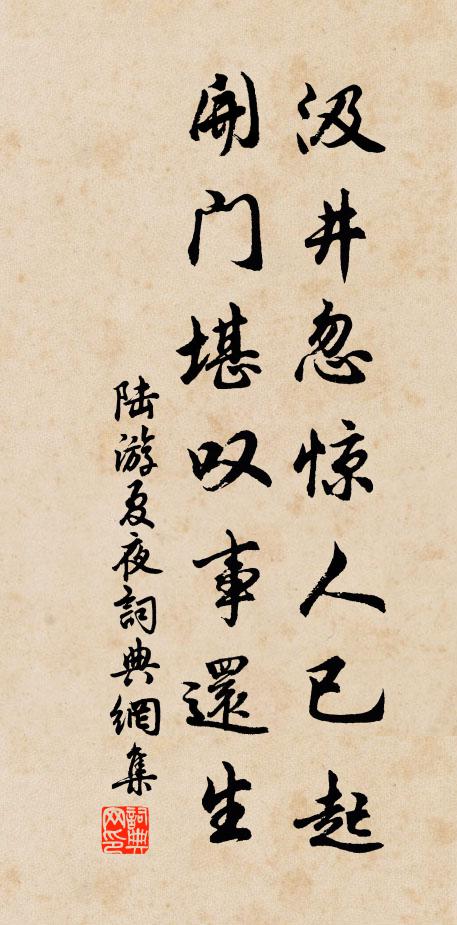 汲井忽惊人已起
開门堪叹事還生
陆游夏夜詞典網集
詞典网印